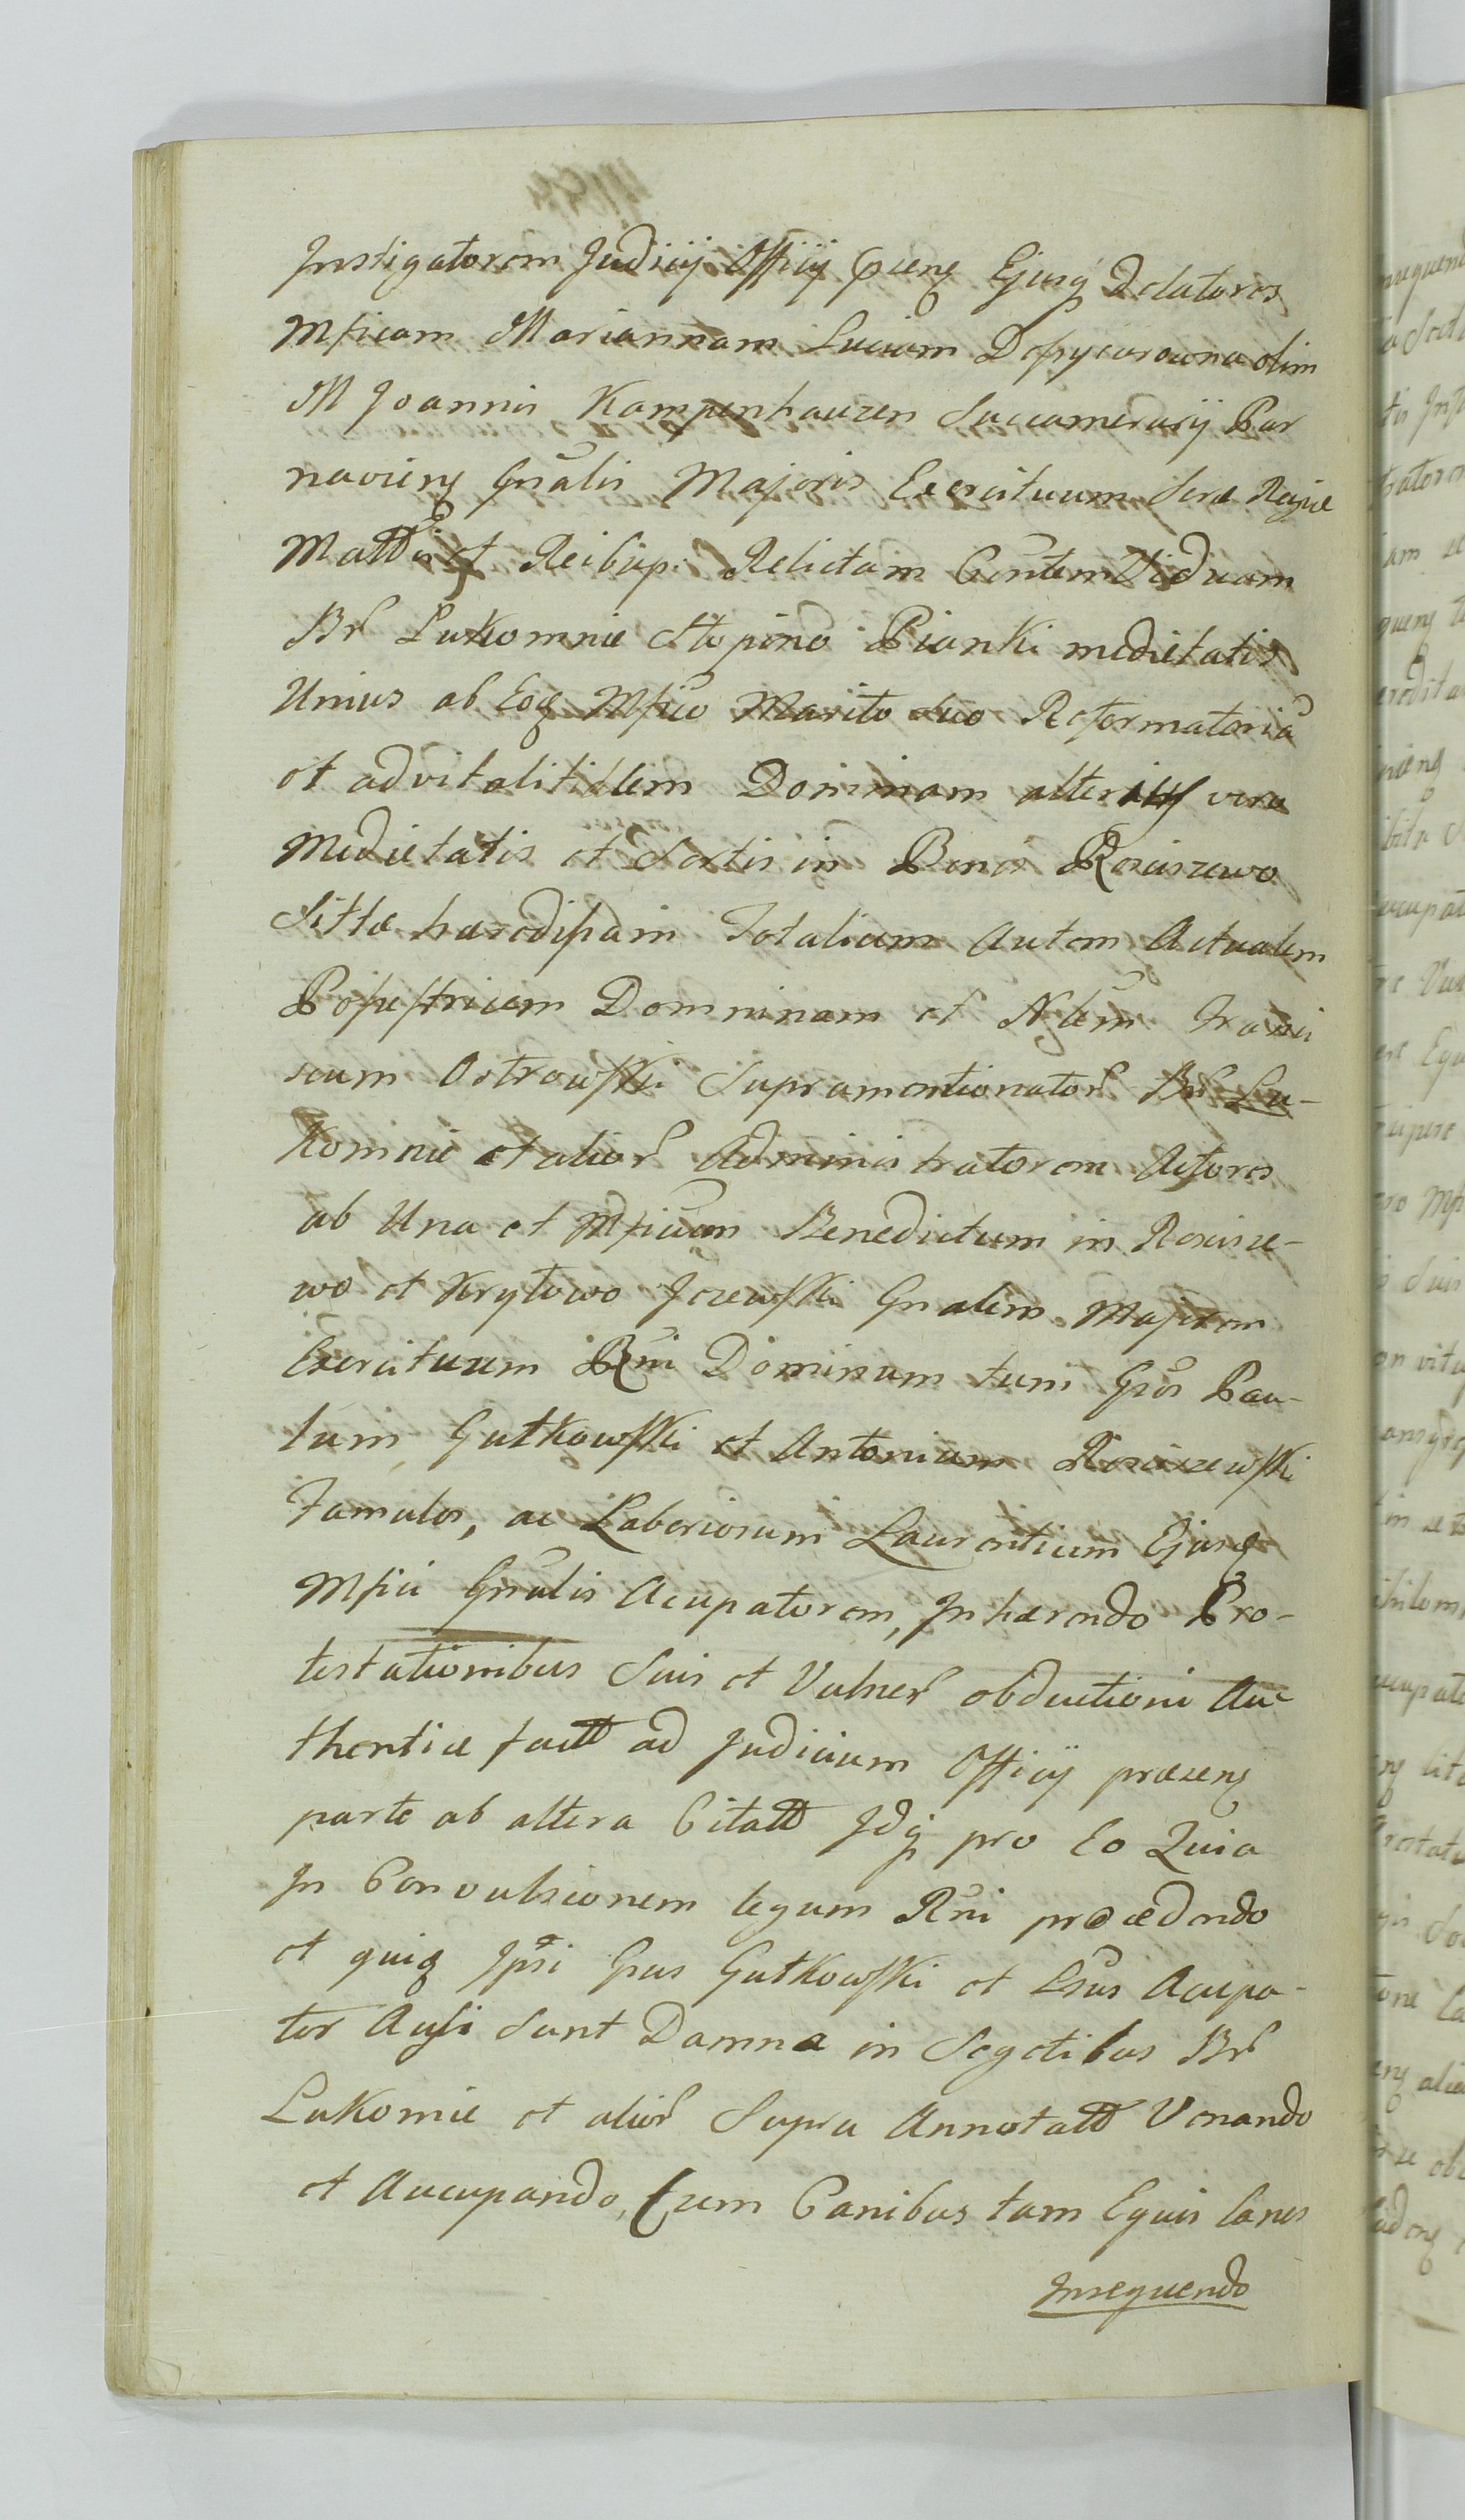 Instigatorem Judicij Officij pnens Ejusq Delatores
Mficam Mariannam Luciam Depszczowna olim
M Joannis Kampenhauzen Succamerarij Par
naviens Gnalis Majoris Exercituum Srae Regiae
Mattis et Reibup: Relictam Viduam
Br Lukomie Stopino Pianki medietatis
Unius ab Eoq Mfico Marito suo Reformatoria
et advitalitialem Dominam alterius vero
Medietatis et Sortis in Bonis Rosciszewo
Sittae haeredissam Totalium autem Actualem
Possestricem Domninam et Nblem Franci
scum Ostrowski Supramentionator Br Lu-
komie et alior Administratorem Actores
ab Una et Mficum Benedictum in Roscisze-
wo et Krytowo Jezewski Gnalem Majorem
Exercituum Rni Dominum tum Gsos Pau-
lum Gutkowski et Antonium Rosciszewski
Famulos, ac Laboriosum Laurentium Ejusq
Mfici Gnalis Acupatorem, Inhaerendo Pro-
testationibus Suis et Vulner obductioni Au-
thentice factt ad Judicium Officij praesens
parte ab altera Citatt Idq pro Eo Quia
In Convulsionem legum Rni procedendo
et quiq Ipsi Gsus Gutkowski et Lsus Acupa-
tor Ausi Sunt Damna in Segetibus Br
Lukomie et alior Supra Annotatt Venando
et Aucupando, Cum Canibus tam Equis Canes
Insequendo